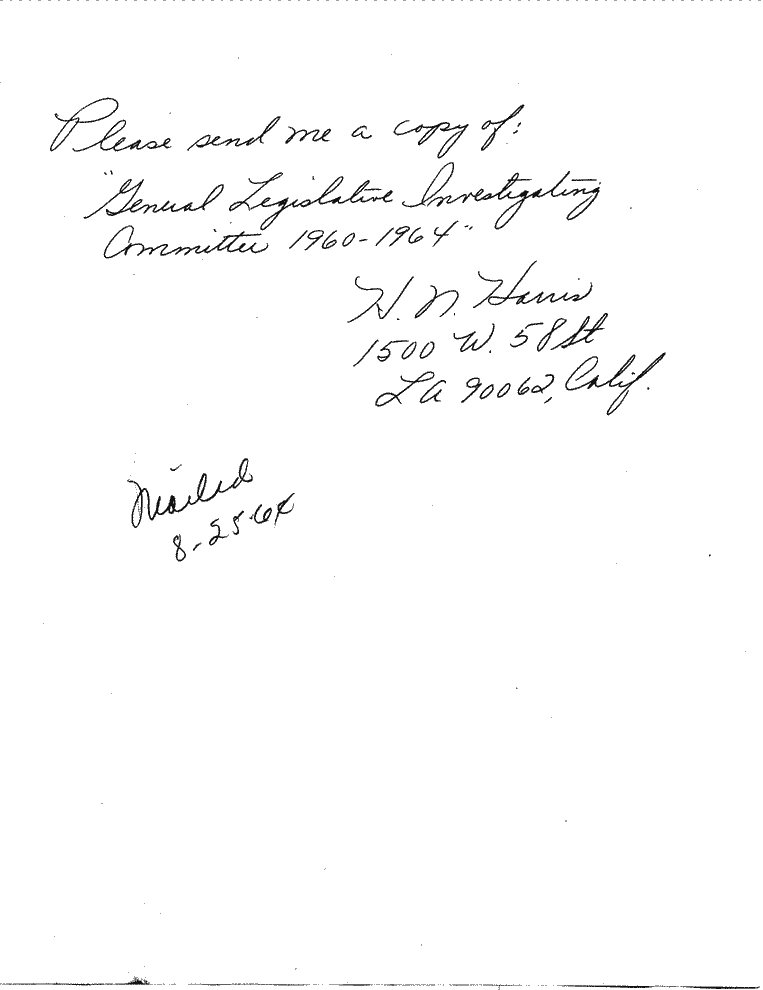 Please send me a copy of:
"General Legislative Investigating
Committee 1960-1964"
H. N. Harris
1500 W. 58 St
LA 90062, Calif.
Mailed
8-25-64